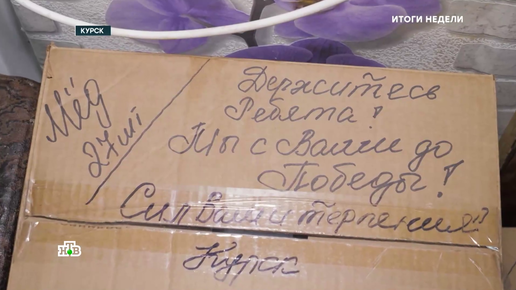 КУРСК
ИТОГИ НЕДЕЛИ
Мёд
27 шт
Держитесь
Ребята!
Мы с Вами до
Победы!
Сил Вам и терпения!!
Курск
НТВ